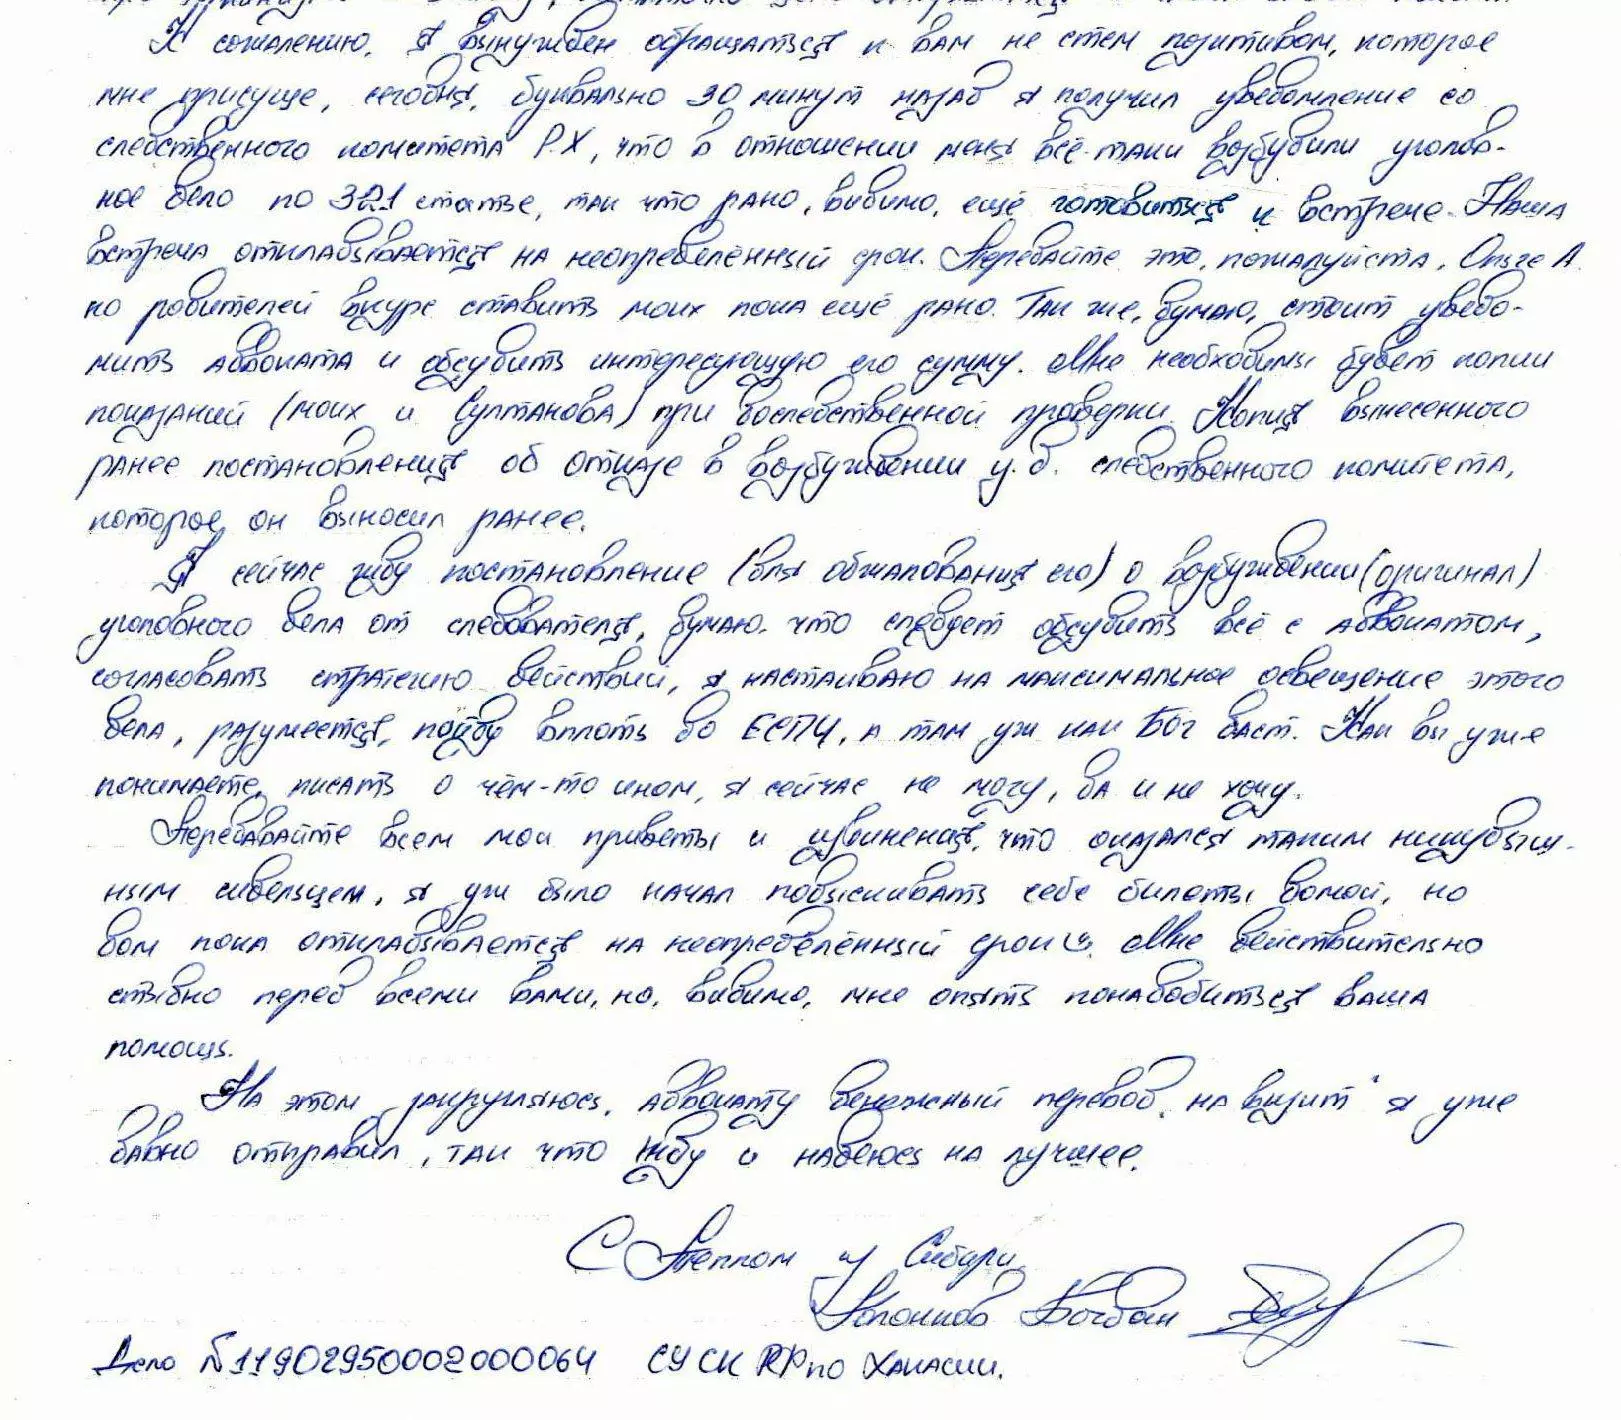 К сожалению, я вынужден обращаться к вам не с тем позитивом, которое
мне присуще, сегодня, буквально 30 минут назад я получил уведомление со
следственного комитета Р.Х, что в отношении меня всё-таки возбудили уголов-
ное дело по 321 статье, так что рано, видимо, ещё готовиться к встрече. Наша
встреча откладывается на неопределённый срок. Передайте это, пожалуйста, Ользе А.
но родителей вкурс ставить моих пока ещё рано. Так же, думаю, стоит уведо-
мить адвоката и обсудить интересующую его сумму. Мне необходимы будет копии
показаний (моих и Султанова) при доследственной проверки. Копия вынесенного
ранее постановления об отказе в возбуждении у.д. следственного комитета,
которое он выносил ранее.
Я сейчас жду постановление (для обжалования его) о возбуждении (оригинал)
уголовного дела от следователя, думаю, что следует обсудить всё с адвокатом,
согласовать стратегию действий, я настаиваю на максимальное освещение этого
дела, разумеется, пойду вплоть до ЕСПЧ, а там уж как Бог даст. Как вы уже
понимаете, писать о чём-то ином, я сейчас не могу, да и не хочу.
Передавайте всем мои приветы и извинения, что оказался таким никудыш-
ным сидельцем, я уж было начал подыскивать себе билеты домой, но
дом пока откладывается на неопределённый срок. Мне действительно
стыдно перед всеми вами, но, видимо, мне опять понадобиться ваша
помощь.
На этом закругляюсь, адвокату денежный перевод на визит я уже
давно отправил, так что жду и надеюсь на лучшее.
С Теплом из Сибири,
Богдан
Дело №11902950002000064 СУ СК RP по Хакасии.